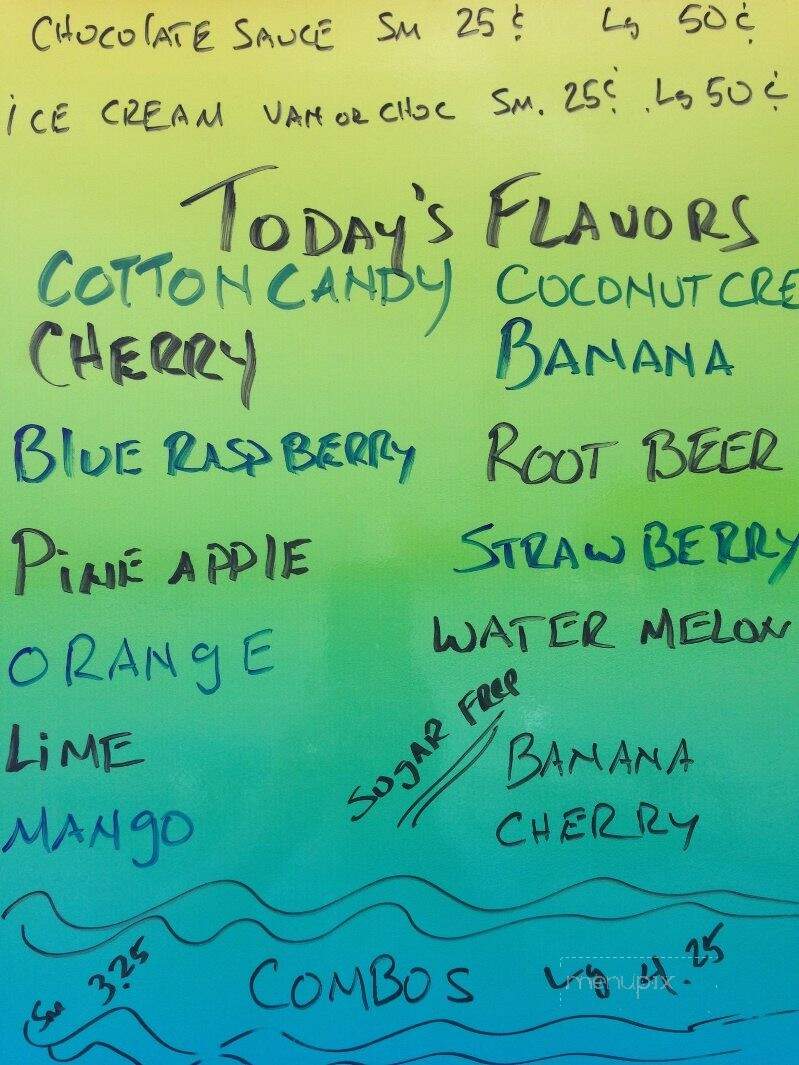 CHOCOLATE SAUCE SM 25¢ Lg 50¢
ICE CREAM VAN OR CHOC SM. 25¢ Lg 50¢
TODAY'S FLAVORS
COTTON CANDY
CHERRY
BLUE RASPBERRY
PINEAPPLE
ORANgE
LiME
MANgO
COCONUT CRE
BANANA
ROOT BEER
STRAWBERRY
WATER MELON
SUgAR FREE
BANANA
CHERRY
SM 3.25 COMBOS Lg 4.25
menupix